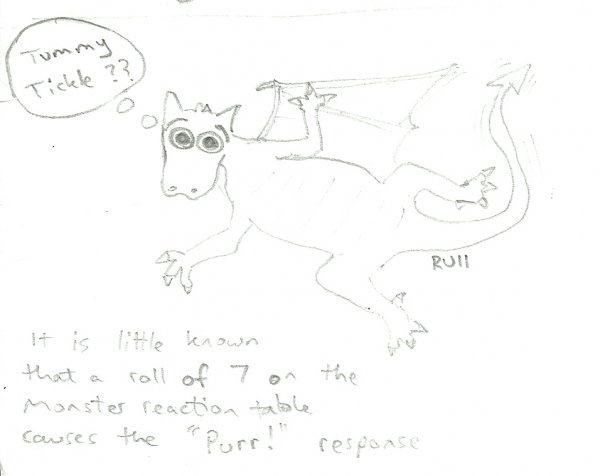 Tummy
Tickle ??
RU11
It is little known
that a roll of 7 on the
Monster reaction table
causes the "Purr!" response